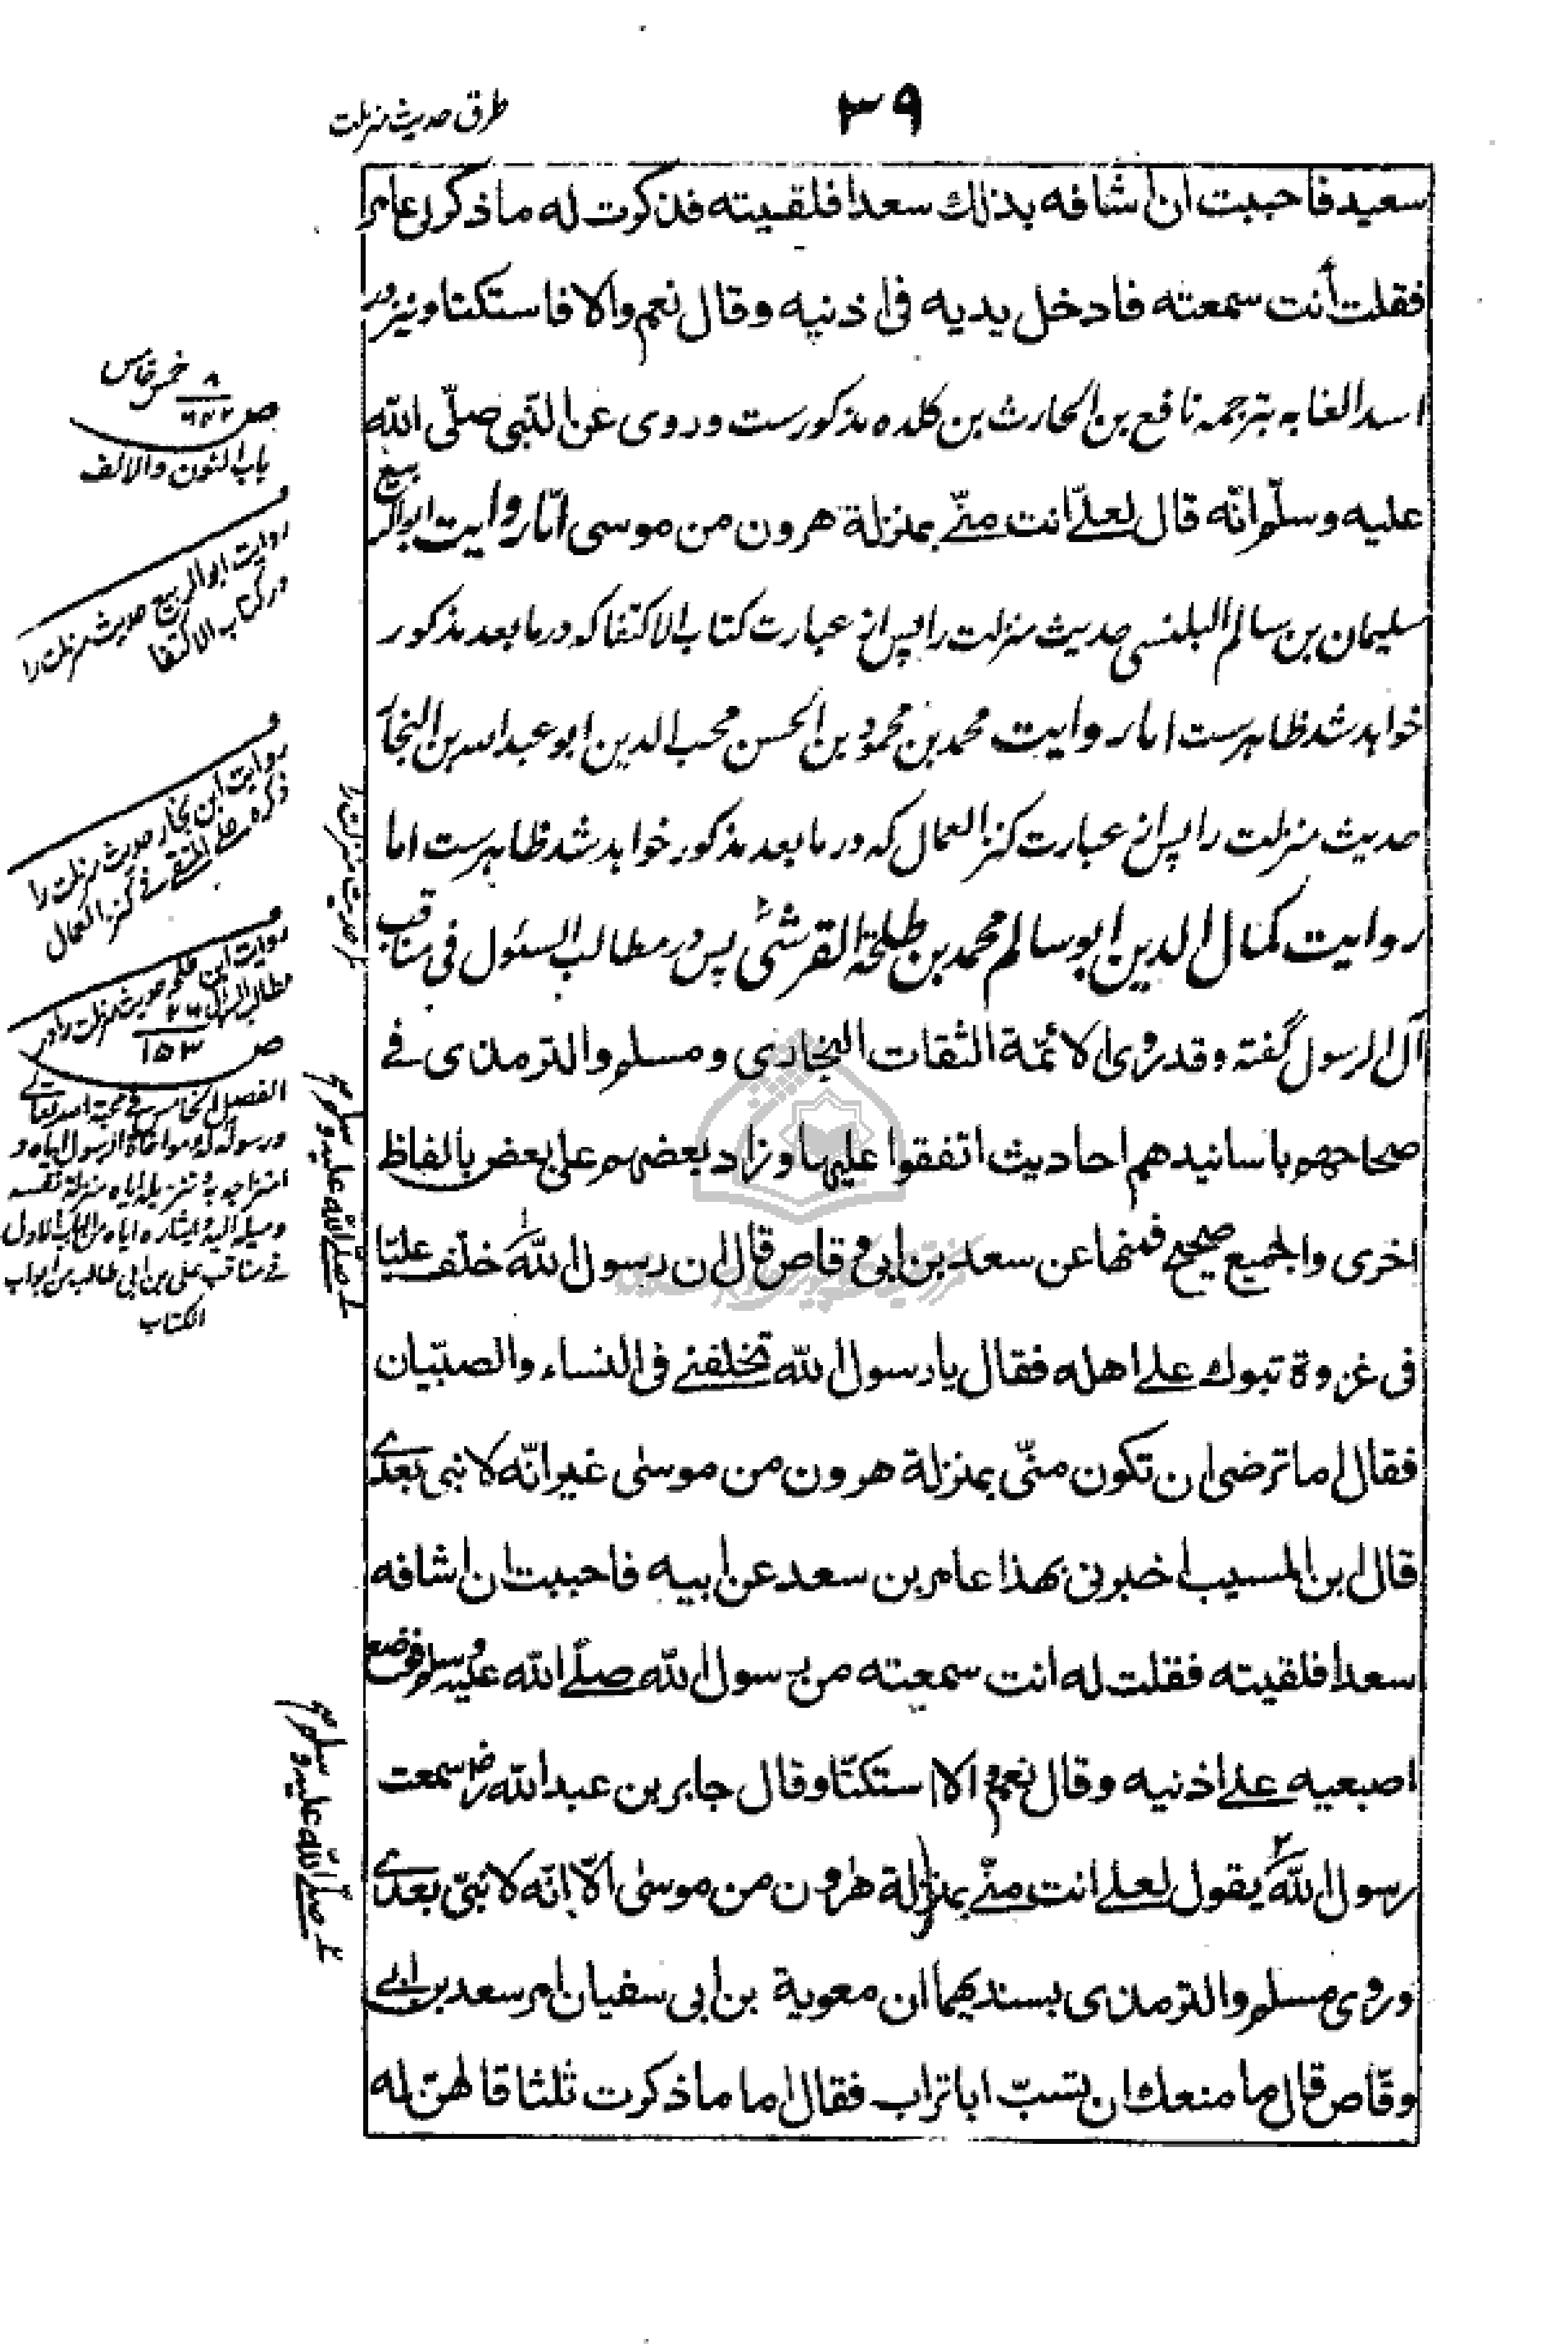 ٣٩
طرق حدیث منزلت
سعید فاحببت ان اشافه بذلك سعدا فلقیته فذکرت له ما ذکر لی عامر
فقلت أنت سمعته فادخل یدیه فی اذنیه وقال نعم والا فاستکتا ونیز در
اسد الغابه بترجمه نافع بن الحارث بن کلده مذکورست وروی عن النّبی صلّی اللّه
علیه وسلّم انّه قال لعلیّ انت منّے بمنزلة هرون من موسی امّا روایت ابو الربیع
سلیمان بن سالم البلنسی حدیث منزلت را پس از عبارت کتاب الاکتفا که در ما بعد مذکور
خواهد شد ظاهرست اما روایت محمد بن محمود بن الحسن محب الدین ابو عبد الله بن النجار
حدیث منزلت را پس از عبارت کنز العمال که در ما بعد مذکور خواهد شد ظاهرست اما
روایت کمال الدین ابو سالم محمد بن طلحة القرشی پس در مطالب السئول فی مناقب
آل الرسول گفته وقد روی الائمّة الثقات البخاری ومسلم والترمذی فے
صحاحهم باسانیدهم احادیث اتفقوا علیها وزاد بعضهم علی بعض بالفاظ
اخری والجمیع صحیح فمنها عن سعد بن ابی وقاص قال ان رسول اللّه خلّف علیّا
فی غزوة تبوك علے اهله فقال یا رسول اللّه تخلفنے فی النساء والصبّیان
فقال اما ترضی ان تکون منّی بمنزلة هرون من موسٰی غیر انّه لا نبی بعدے
قال ابن المسیب اخبرنی بهذا عامر بن سعد عن ابیه فاحببت ان اشافه
سعدا فلقیته فقلت له انت سمعته من رسول اللّه صلّے اللّه علیه وسلم فوضع
اصبعیه علے اذنیه وقال نعم والا استکتّا وقال جابر بن عبد اللّه رض سمعت
رسول اللّه یقول لعلے انت منّے بمنزلة هٰرون من موسٰی الّا انّه لا نبّی بعدے
وروی مسلم والترمذی بسندیهما ان معویة بن ابی سفیان امر سعد بن ابے
وقّاص قال ما منعك ان تسبّ ابا تراب فقال اما ما ذکرت ثلثا قالهنّ له
٨ خمس خامس
ص ٦٤٢
باب النون والالف
روایت ابو الربیع حدیث منزلت را
در کتاب الاکتفا
روایت ابن نجار حدیث منزلت را
ذکره علے المتقے فی کنز العمال
روایت ابن طلحه حدیث منزلت را در
مطالب السئول ٢٦
ص ١٥٣
الفصل الخامس فے محبة الله تعالے
ورسوله له ومواخاة الرسول ایاه و
امتزاجه به وتنزیله ایاه منزلة نفسه
ومیله الیه وایثاره ایاه من الباب الاول
فے مناقب علی بن ابی طالب من ابواب
الکتاب
حدیث منزلت را
صلّے اللّه علیه وسلم
صلّے اللّه علیه وسلم